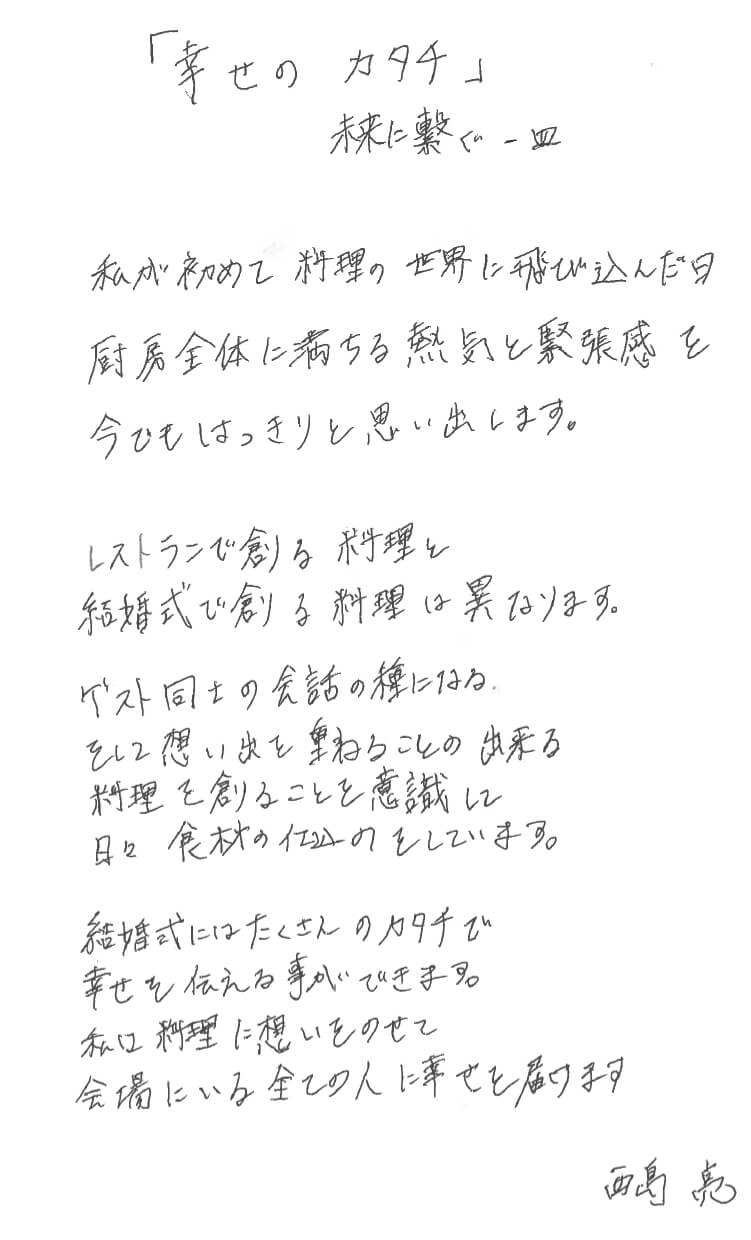 「幸せの カタチ」
未来に繋ぐ一皿
私が初めて 料理の 世界に飛び込んだ日
厨房全体に満ちる熱気と緊張感を
今でもはっきりと思い出します。
レストランで創る 料理と
結婚式で創る料理は異なります。
ゲスト同士の会話の種になる
そして想い出を重ねることの出来る
料理を創ることを意識して
日々 食材の仕込みをしています。
結婚式にはたくさんのカタチで
幸せを伝える事ができます。
私は料理に想いをのせて
会場にいる全ての人に幸せを届けます
西島 亮